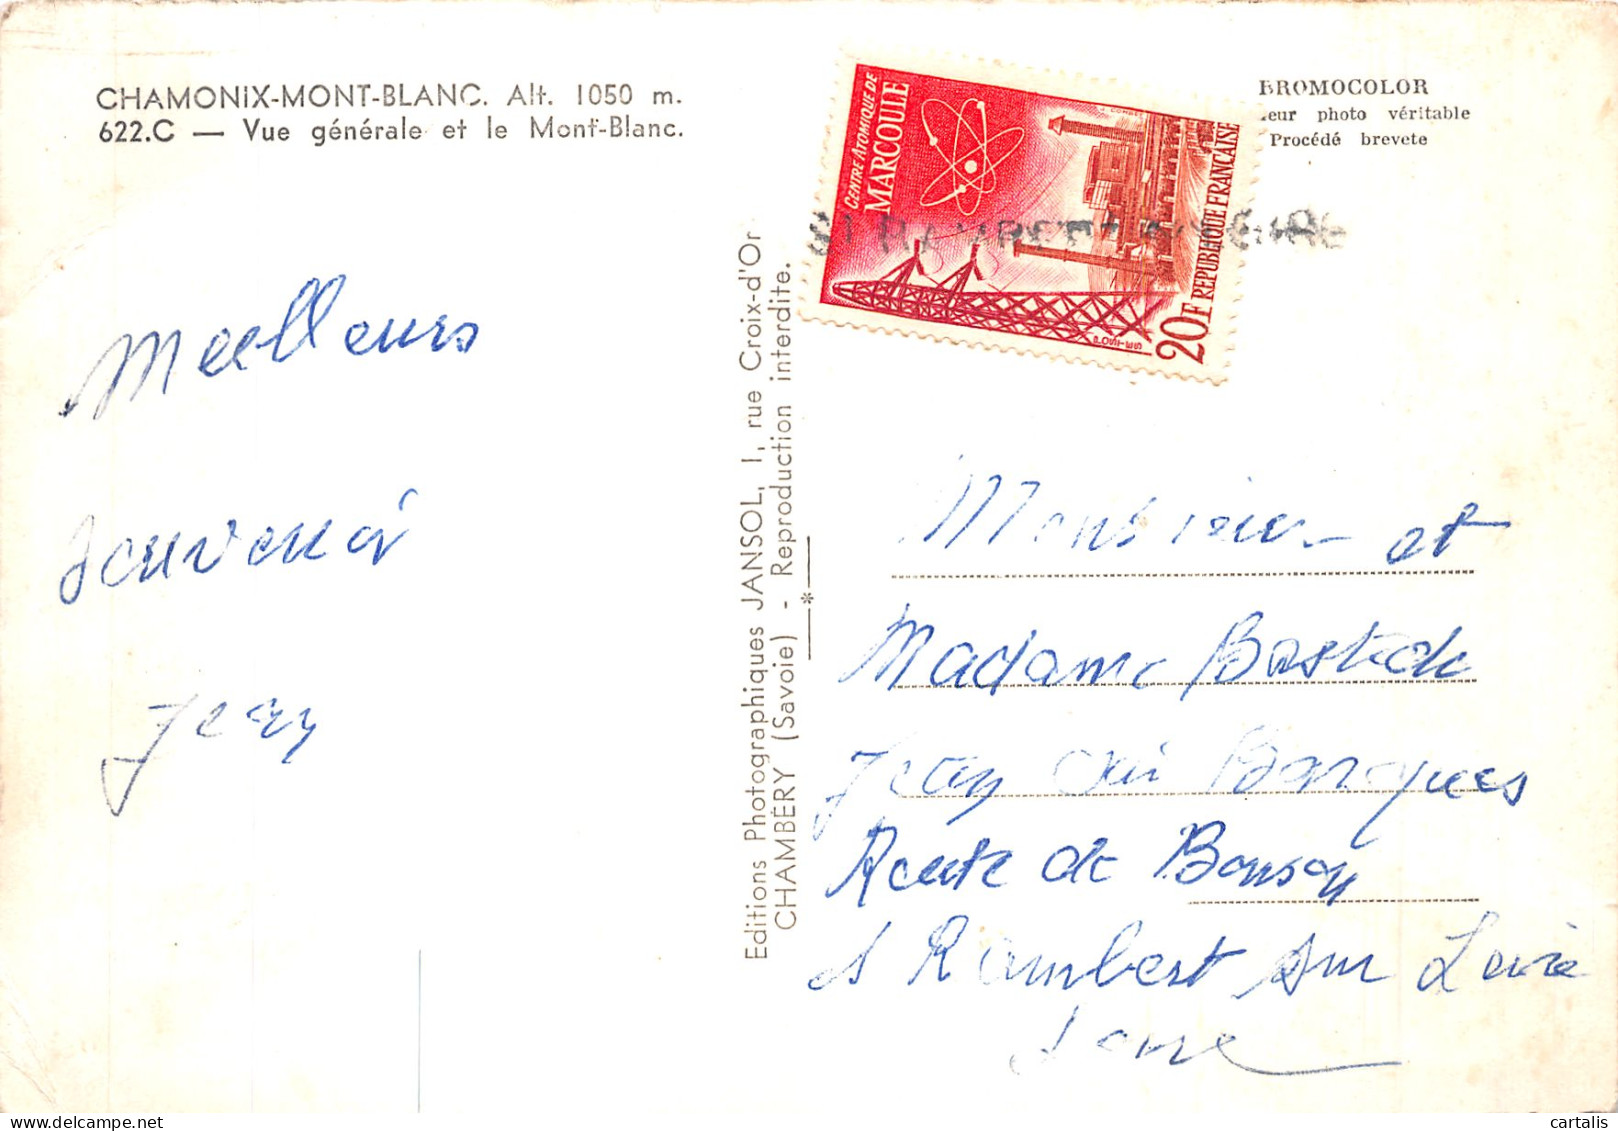 CHAMONIX-MONT-BLANC. Alt. 1050 m.
622.C — Vue générale et le Mont-Blanc.
Meilleurs
souvenir
Jean
Editions Photographiques JANSOL, 1, rue Croix-d'Or
CHAMBÉRY (Savoie) - Reproduction interdite.
CENTRE ATOMIQUE DE
MARCOULE
20F REPUBLIQUE FRANÇAISE
BROMOCOLOR
leur photo véritable
Procédé brevete
Monsieur et
Madame
Jean
Barques
Route de Bonson
St Rambert sur Loire
Loire
cartalis